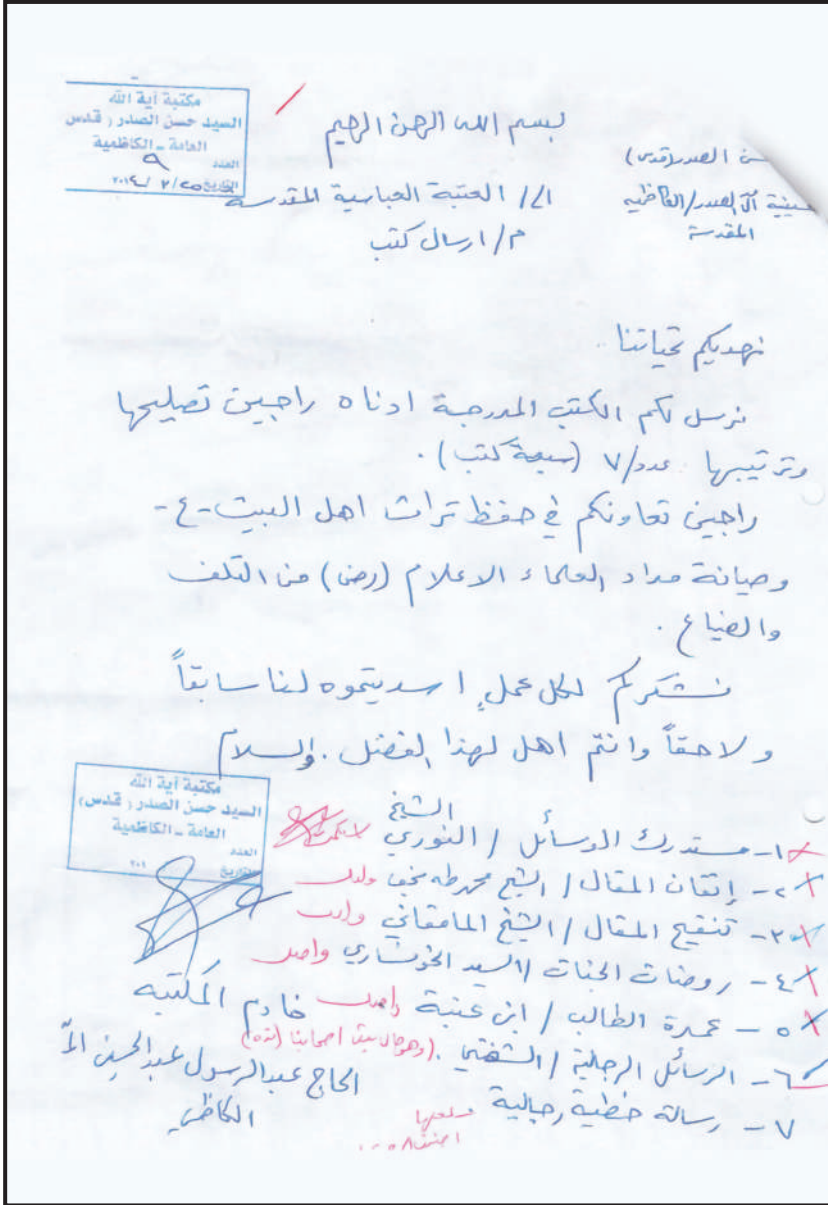 بسم الله الرحمن الرحيم
مكتبة آية الله
السيد حسن الصدر (قدس)
العامة - الكاظمية
العدد ٩
التاريخ ٢٥/ ٢/ ٢٠١٤
الصدر (قدس)
حسينية آل الصدر/الكاظمية
المقدسة
الى/ العتبة العباسية المقدسة
م/ ارسال كتب
نهديكم تحياتنا
نرسل لكم الكتب المدرجة ادناه راجين تصليحها
وترتيبها عدد/٧ (سبعة كتب).
راجين تعاونكم في حفظ تراث اهل البيت -ع-
وصيانة مداد العلماء الاعلام (رض) من التلف
والضياع.
نشكركم لكل عملٍ اسديتموه لنا سابقاً
ولاحقاً وانتم اهل لهذا الفضل. والسلام
مكتبة آية الله
السيد حسن الصدر (قدس)
العامة - الكاظمية
العدد
التاريخ ٢٠١
١- مستدرك الوسائل / الشيخ النوري
٢- إتقان المقال / الشيخ محمد طه نجف واحد
٣- تنقيح المقال / الشيخ المامقاني واحد
٤- روضات الجنات / السيد الخونساري واحد
٥- عمدة الطالب / ابن عنبة واحد
٦- الرسائل الرجالية / الشفتي.
٧- رسالة خطية رجالية
خادم المكتبة
الحاج عبدالرسول عبدالحسين
الكاظمي